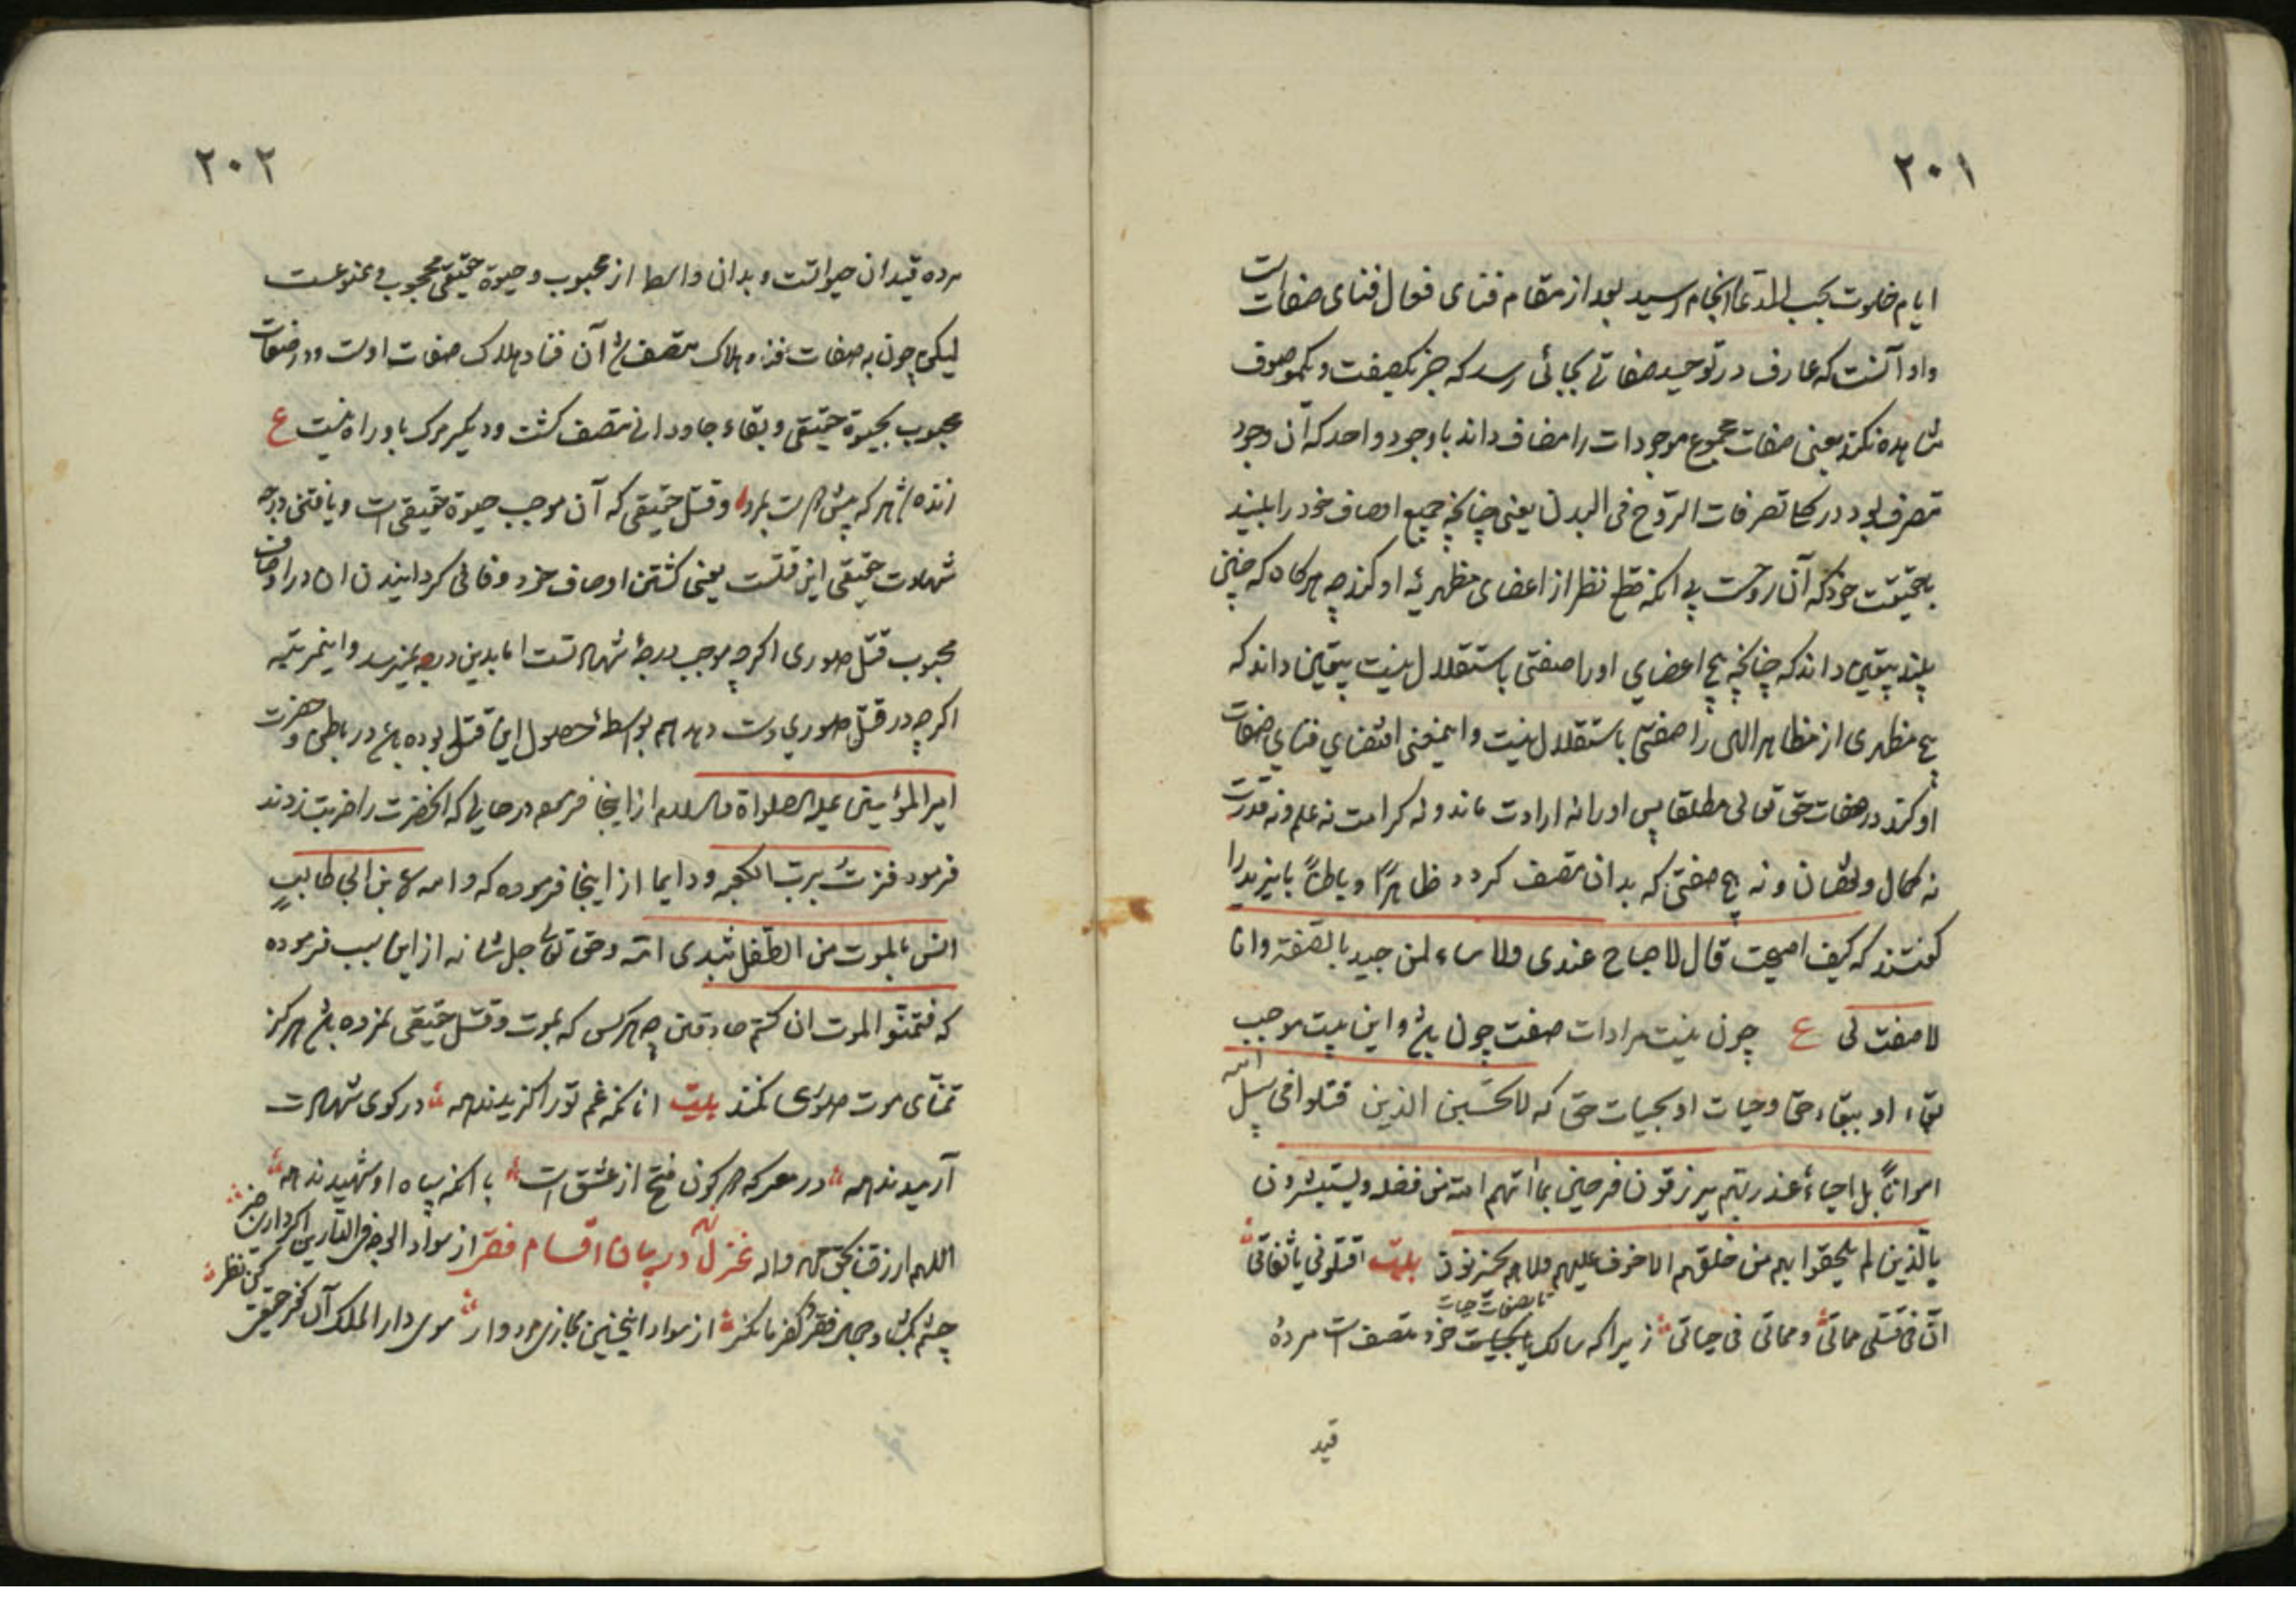 ٢٠١
ایام خلوت بحسب المدعا انجام رسید بعد از مقام فنای فعال فنای صفات است
واو آنست که عارف در توحید صفاتی بجائی رسد که جز یکصفت و یکموصوف
مشاهده نکند یعنی صفات مجموع موجودات را مضاف داند باوجود واحد که آن وجود
متصرف بود در کل تصرفات الروح فی البدن یعنی چنانچه جمیع اوصاف خود را بیند
بحقیقت خود که آن روحست بی آنکه قطع نظر از اعضای مظهریه او کند چه هرکاه که چنین
بیند بیقین داند که چنانچه هیچ اعضای او را صفتی باستقلال نیست بیقین داند که
هیچ مظهری از مظاهر الهی را صفتی باستقلال نیست و اینمعنی اقتضای فنای صفات
او کند در صفات حق تعالی مطلقا پس او را نه ارادت ماند و نه کرامت نه علم و نه قدرت
نه کمال و نقصان و نه هیچ صفتی که بدان متصف کردد ظاهرًا و باطنًا بایزید را
کفتند که کیف اصبحت قال لا صباح عندی ولا مساء لمن جید بالصفة وانا
لا صفت لی ع چون نیست مرا ذات صفت چون باشد و این نیست موجب
بقاء او ببقاء حق و حیات او بحیات حق که لا تحسبن الذین قتلوا فی سبیل الله
امواتًا بل احیاء عند ربهم یرزقون فرحین بما آتیهم الله من فضله ویستبشرون
بالذین لم یلحقوا بهم من خلفهم الا خوف علیهم ولا هم یحزنون بیت اقتلونی یا ثقاتی
انّ فی قتلی حیاتی ومماتی فی حیاتی زیرا که سالک تا بصفات حیات بحیات خود متصف است مردهٔ
قید
٢٠٢
مرده قید ان حیوانست و بدان واسطه از محبوب و حیوة حقیقی محجوب و ممنوعست
لیکن چون به صفات فنا و هلاک متصف شد آن فنا و هلاک صفات اوست و در صفات
محبوب بحیوة حقیقی و بقاء جاودانی متصف کشت و دیکر مرک باو راه نیست ع
زنده شد هر که پیش دوست بمرد و قتل حقیقی که آن موجب حیوة حقیقی است و یافتن درجه
شهادت حقیقی این قتلست یعنی کشتن اوصاف خود و فانی کردانیدن آن در اوصاف
محبوب قتل صوری اکرچه موجب درجهٔ شهادتست اما بدین درجه نمیرسد و اینمرتبه
اکرچه در قتل صوری دست دهد هم بواسطهٔ حصول این قتل بوده باشد در باطن و حضرت
امیر المؤمنین علیه الصلواة والسلام از اینجا فرمود در حالی که آنحضرت را ضربت زدند
فرمود فزت برب الکعبه و دایما از اینجا فرموده که والله لابن ابی طالب
انس بالموت من الطفل بثدی امه و حق تعالی جل شانه از این سبب فرموده
که فتمنوا الموت ان کنتم صادقین چه هر کس که بموت و قتل حقیقی نمرده باشد هرکز
تمنّای موت صوری نکند بیت آنانکه غم تو را کزیدند همه در کوی شهادت
آرمیدند همه در معرکه دو کون فتح از عشق است با آنکه سپاه او شهیدند همه
اللهم ارزقنا بحق محمد وآله غزل در بیان اقسام فقر از سواد الوجه فی الدارین اکر داری خبر
چشم بکشا و جمال فقر و کفر ما نکر از سواد اینچنین مجازی رو در آر سوی دار الملک آن کفر حقیقی کن نظر